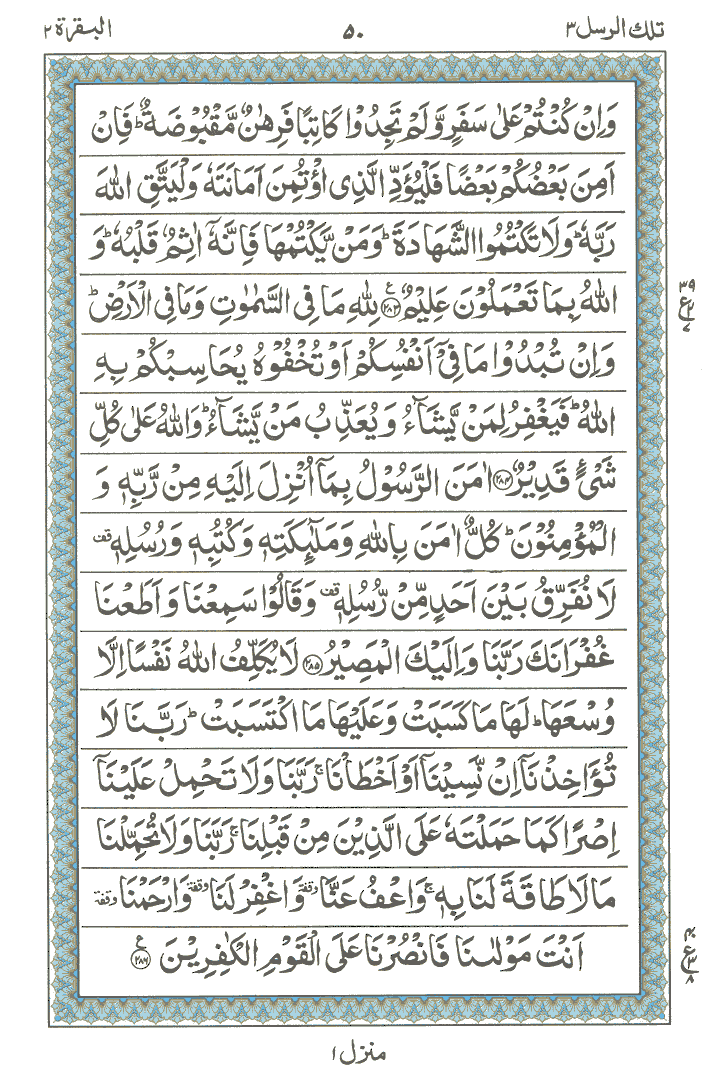 تلك الرسل ٣ ٥٠ البقرة ٢
وَاِنْ كُنْتُمْ عَلٰى سَفَرٍ وَّلَمْ تَجِدُوْا كَاتِبًا فَرِهٰنٌ مَّقْبُوْضَةٌ ؕ فَاِنْ
اَمِنَ بَعْضُكُمْ بَعْضًا فَلْيُؤَدِّ الَّذِى اؤْتُمِنَ اَمَانَتَهٗ وَلْيَتَّقِ اللّٰهَ
رَبَّهٗ ؕ وَلَا تَكْتُمُوا الشَّهَادَةَ ؕ وَمَنْ يَّكْتُمْهَا فَاِنَّهٗۤ اٰثِمٌ قَلْبُهٗ ؕ وَ
اللّٰهُ بِمَا تَعْمَلُوْنَ عَلِيْمٌ ﴿۲۸۳﴾ۧ لِلّٰهِ مَا فِى السَّمٰوٰتِ وَمَا فِى الْاَرْضِ ؕ
وَاِنْ تُبْدُوْا مَا فِىْۤ اَنْفُسِكُمْ اَوْ تُخْفُوْهُ يُحَاسِبْكُمْ بِهِ
اللّٰهُ ؕ فَيَغْفِرُ لِمَنْ يَّشَآءُ وَيُعَذِّبُ مَنْ يَّشَآءُ ؕ وَاللّٰهُ عَلٰى كُلِّ
شَىْءٍ قَدِيْرٌ ﴿۲۸۴﴾ اٰمَنَ الرَّسُوْلُ بِمَاۤ اُنْزِلَ اِلَيْهِ مِنْ رَّبِّهٖ وَ
الْمُؤْمِنُوْنَ ؕ كُلٌّ اٰمَنَ بِاللّٰهِ وَمَلٰٓئِكَتِهٖ وَكُتُبِهٖ وَرُسُلِهٖ قف
لَا نُفَرِّقُ بَيْنَ اَحَدٍ مِّنْ رُّسُلِهٖ قف وَقَالُوْا سَمِعْنَا وَاَطَعْنَا
غُفْرَانَكَ رَبَّنَا وَاِلَيْكَ الْمَصِيْرُ ﴿۲۸۵﴾ لَا يُكَلِّفُ اللّٰهُ نَفْسًا اِلَّا
وُسْعَهَا ؕ لَهَا مَا كَسَبَتْ وَعَلَيْهَا مَا اكْتَسَبَتْ ؕ رَبَّنَا لَا
تُؤَاخِذْنَاۤ اِنْ نَّسِيْنَاۤ اَوْ اَخْطَاْنَا ۚ رَبَّنَا وَلَا تَحْمِلْ عَلَيْنَاۤ
اِصْرًا كَمَا حَمَلْتَهٗ عَلَى الَّذِيْنَ مِنْ قَبْلِنَا ۚ رَبَّنَا وَلَا تُحَمِّلْنَا
مَا لَا طَاقَةَ لَنَا بِهٖ ۚ وَاعْفُ عَنَّا وقفة وَاغْفِرْ لَنَا وقفة وَارْحَمْنَا وقفة
اَنْتَ مَوْلٰىنَا فَانْصُرْنَا عَلَى الْقَوْمِ الْكٰفِرِيْنَ ﴿۲۸۶﴾ۧ
٣٩
ع
٧
٤٠
ع
٣
٨
منزل ١